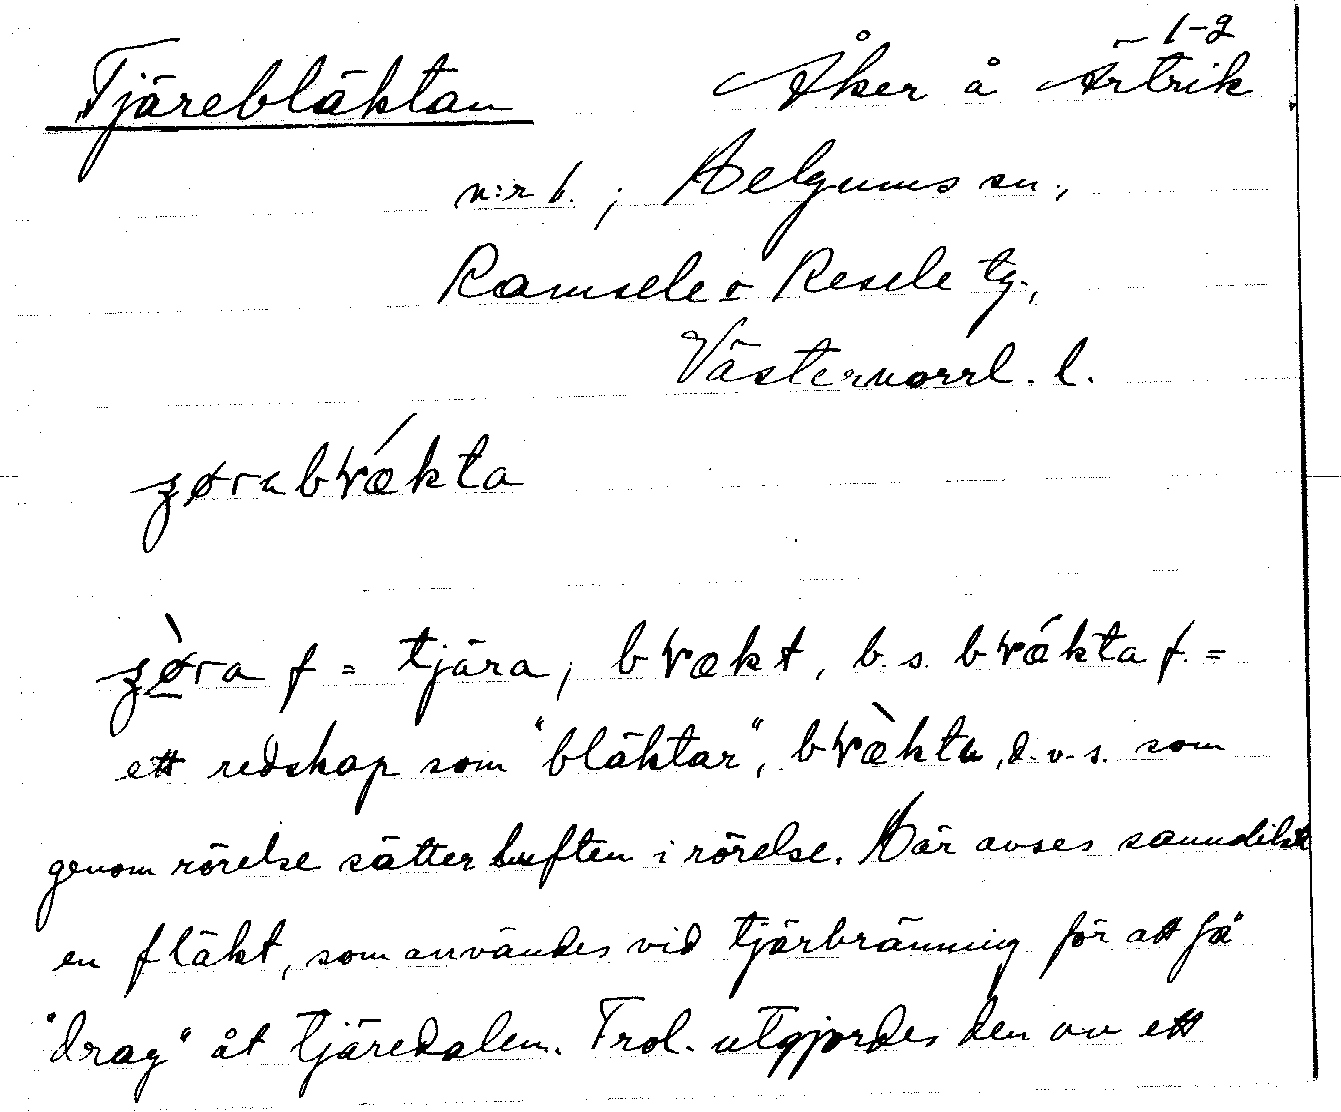 Tjärebläktan Åker å Ärtrik 1-2
n:r 1. ; Helgums sn.,
Ramsele o Resele tg.,
Västernorrl. l.
ʒørabɽǽkta
ʒø̀ra f = tjära, bɽækt, b. s. bɽǽkta f. =
ett redskap som "bläktar", bɽæ̀kta, d.v.s. som
genom rörelse sätter luften i rörelse. Här avses sannolikt
en fläkt, som användes vid tjärbränning för att få
"drag" åt tjäredalen. Trol. utgjordes den av ett